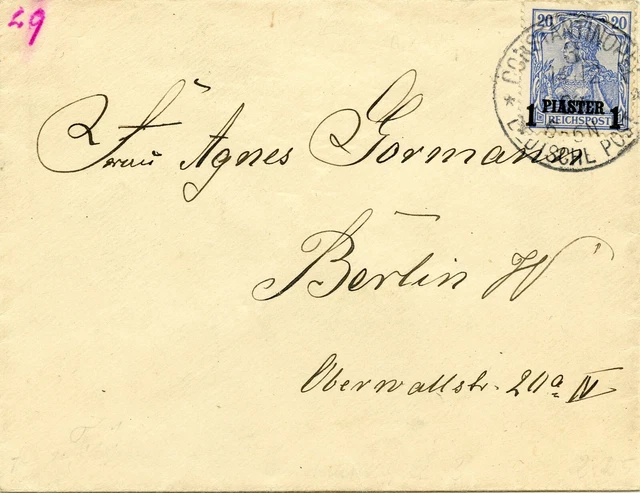 29
20 20
1 PIASTER 1
REICHSPOST
CONSTANTINOPEL
3
DEUTSCHE POST
Frau Agnes Gormansky
Berlin W
Oberwallstr. 20a IV